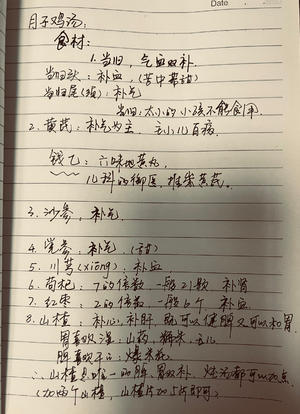 Date
月子鸡汤:
食材:
1.当归, 气血双补.
当归头: 补血, (苦中带甜)
当归尾(须): 补气
当归: 太小的小孩不能食用.
2. 黄芪: 补气为主, 主小儿百病.
钱乙: 六味地黄丸,
儿科的御医, 推荐黄芪。
3. 沙参, 补气.
4. 党参: 补气 (甜)
5. 川芎(xiōng): 补血
6. 枸杞: 7的倍数 一般21颗 补肾
7. 红枣: 2的倍数 一般6个 补血
8. 山楂: 补心, 补肝, 既可以健脾又可以和胃.
胃喜欢湿: 山药, 糯米,
脾喜欢干: 爆米花.
∴ 山楂是唯一的脾, 胃双补, 炖汤都可以加点.
(加两个山楂, 山楂片加5片即可)